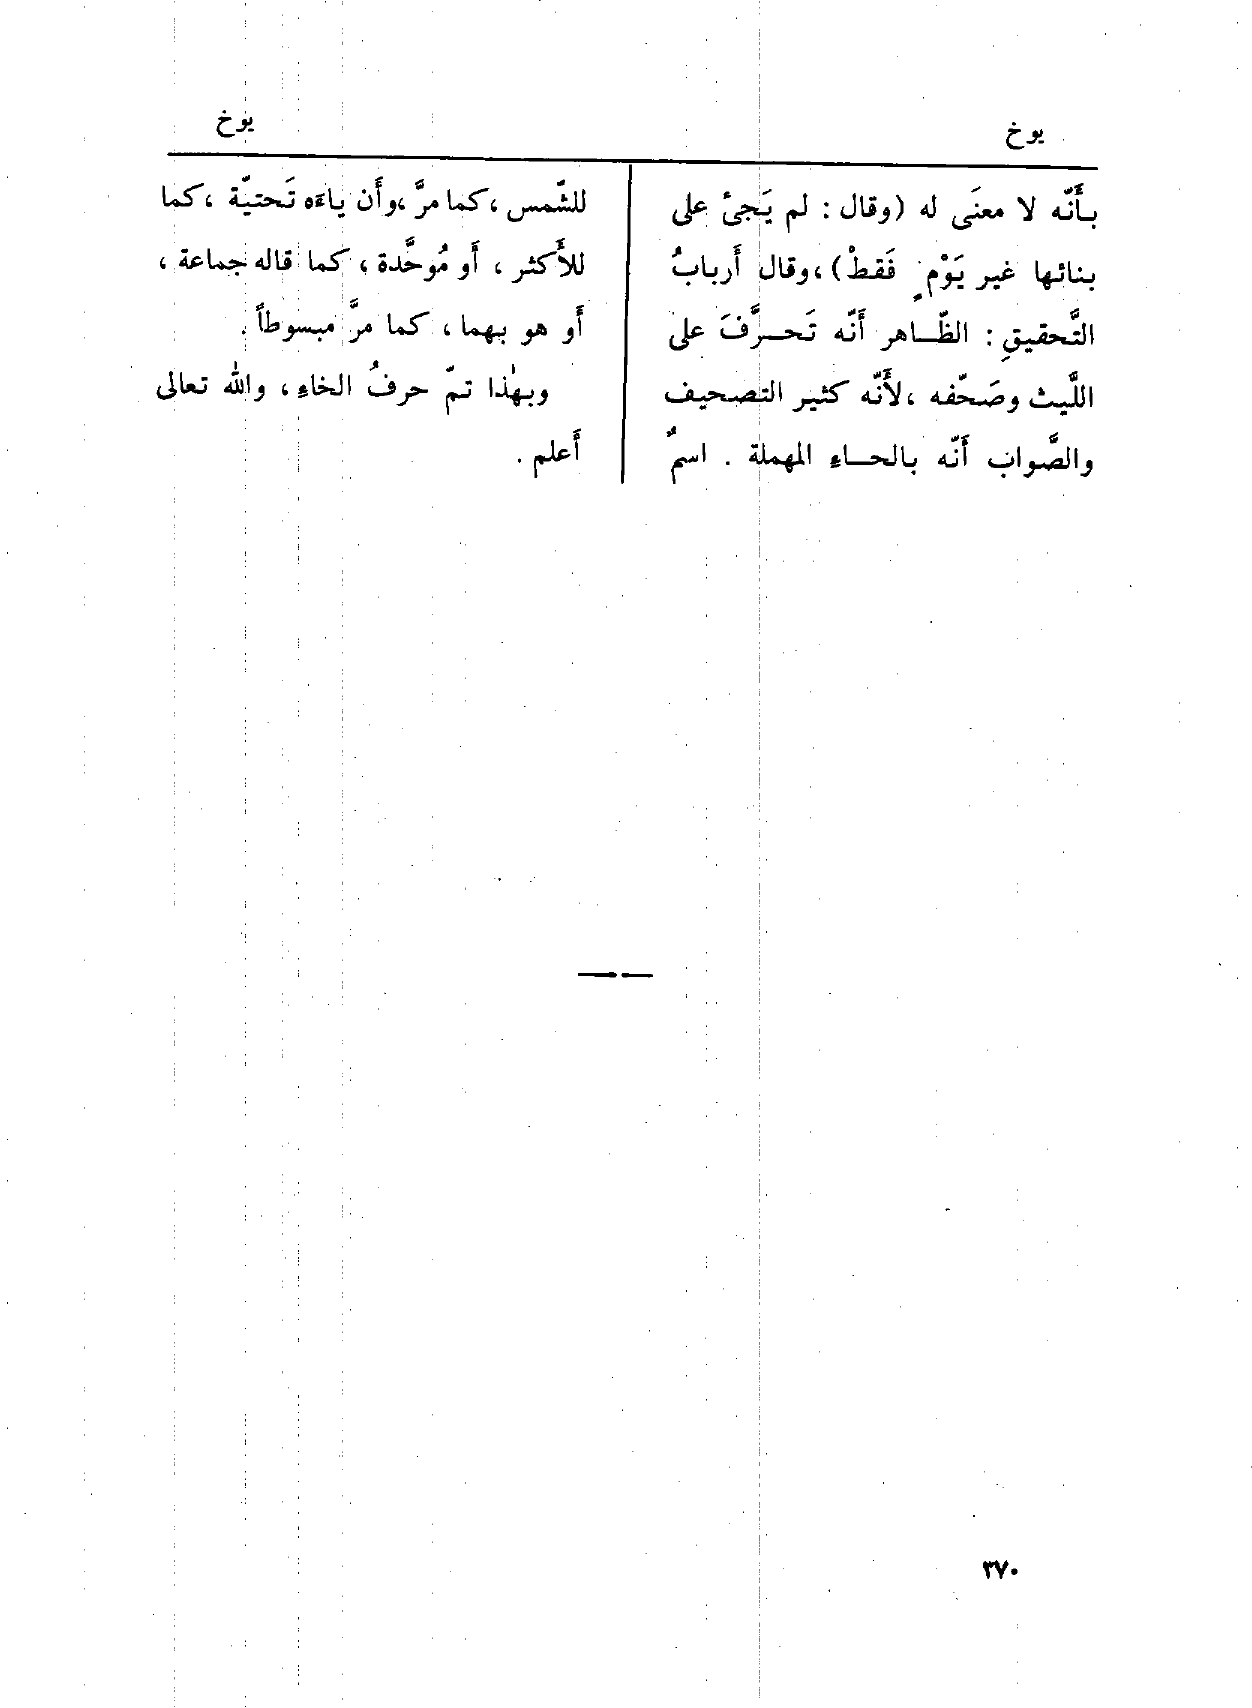 يوخ
يوخ
بأَنّه لا معنَى له (وقال : لم يَجئْ على
بنائها غير يَوْمٍ فَقطْ)، وقال أَربابُ
التَّحقيقِ : الظّاهر أَنّه تَحرَّفَ على
اللَّيث وصَحّفه ، لأَنّه كثير التصحيف
والصَّواب أَنّه بالحاءِ المهملة . اسمٌ
للشّمس ، كما مرَّ ، وأَن ياءَه تَحتيّة ، كما
للأَكثر ، أَو مُوحَّدة ، كما قاله جماعة ،
أَو هو بهما ، كما مرَّ مبسوطاً .
وبهٰذا تمّ حرفُ الخاءِ ، والله تعالى
أَعلم .
٣٧٠